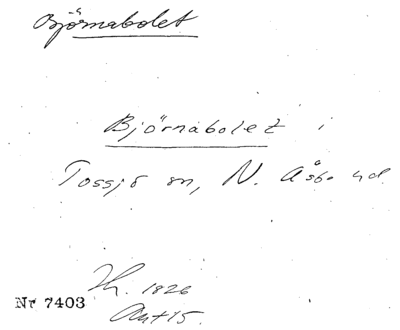 Björnabolet
Björnabolet i
Tossjö sn, N. Åsbo hd
Th. 1826
Nr 7403
Akt 15.